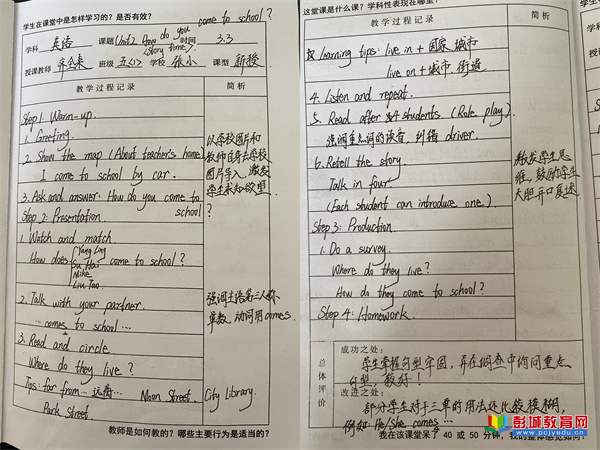 学生在课堂中是怎样学习的？是否有效？
学科 英语 课题 Unit2 How do you come to school?
(story time) 时间 3.3
授课教师 班级 五(1) 学校 张小 课型 新授
教学过程记录 简析
Step 1: Warm-up.
1. Greeting.
2. Show the map (About teacher's home)
I come to school by car.
3. Ask and answer: How do you come to school?
以学校图片和
教师自身去学校
图片导入，激发
学生求知欲望
Step 2: Presentation.
1. Watch and match.
How does Yang Ling
Su Hai
Mike
Liu Tao
come to school?
2. Talk with your partner.
... comes to school ...
强调主语第三人称
单数，动词用comes.
3. Read and circle
Where do they live?
Tips: far from 远离... Moon Street. City Library.
Park Street
教师是如何教的？哪些主要行为是适当的？
这堂课是什么课？学科性表现在哪里？
教学过程记录 简析
Learning tips: live in + 国家 城市
live on + 城市 街道
4. Listen and repeat.
5. Read after students. (Role play)
强调重点词的读音，纠错 driver.
6. Retell the story
Talk in four
(Each student can introduce one.)
激发学生思
维，鼓励学生
大胆开口复述
Step 3: Production.
1. Do a survey.
Where do they live?
How do they come to school?
Step 4: Homework.
总体评价
成功之处：
学生掌握句型牢固，并在调查中询问重点
句型，较好！
改进之处：
部分学生对于三单的用法还比较模糊，
例如 He/she comes ...
我在该课堂呆了 40 或 50 分钟，我的整体感觉如何？
彭城教育网
www.pcjyedu.cn